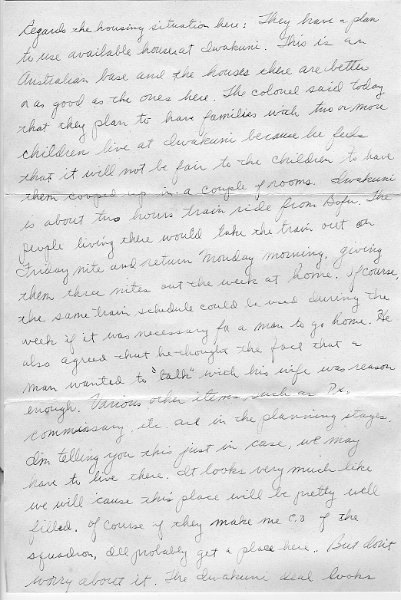 Regards the housing situation here: They have a plan
to use available houses at Iwakuni. This is an
Australian base and the houses there are better
or as good as the ones here. The colonel said today
that they plan to have families with two or more
children live at Iwakuni because he feels
that it will not be fair to the children to have
them cooped up in a couple of rooms. Iwakuni
is about two hours train ride from Bofu. The
people living there would take the train out on
Friday nite and return Monday morning, giving
them three nites out the week at home. Of course,
the same train schedule could be used during the
week if it was necessary for a man to go home. He
also agreed that he thought the fact that a
man wanted to "talk" with his wife was reason
enough. Various other items, such as Px,
commissary, etc are in the planning stages.
I'm telling you this just in case, we may
have to live there. It looks very much like
we will 'cause this place will be pretty well
filled. Of course if they make me C.O of the
squadron, I'll probably get a place here. But don't
worry about it. The Iwakuni deal looks